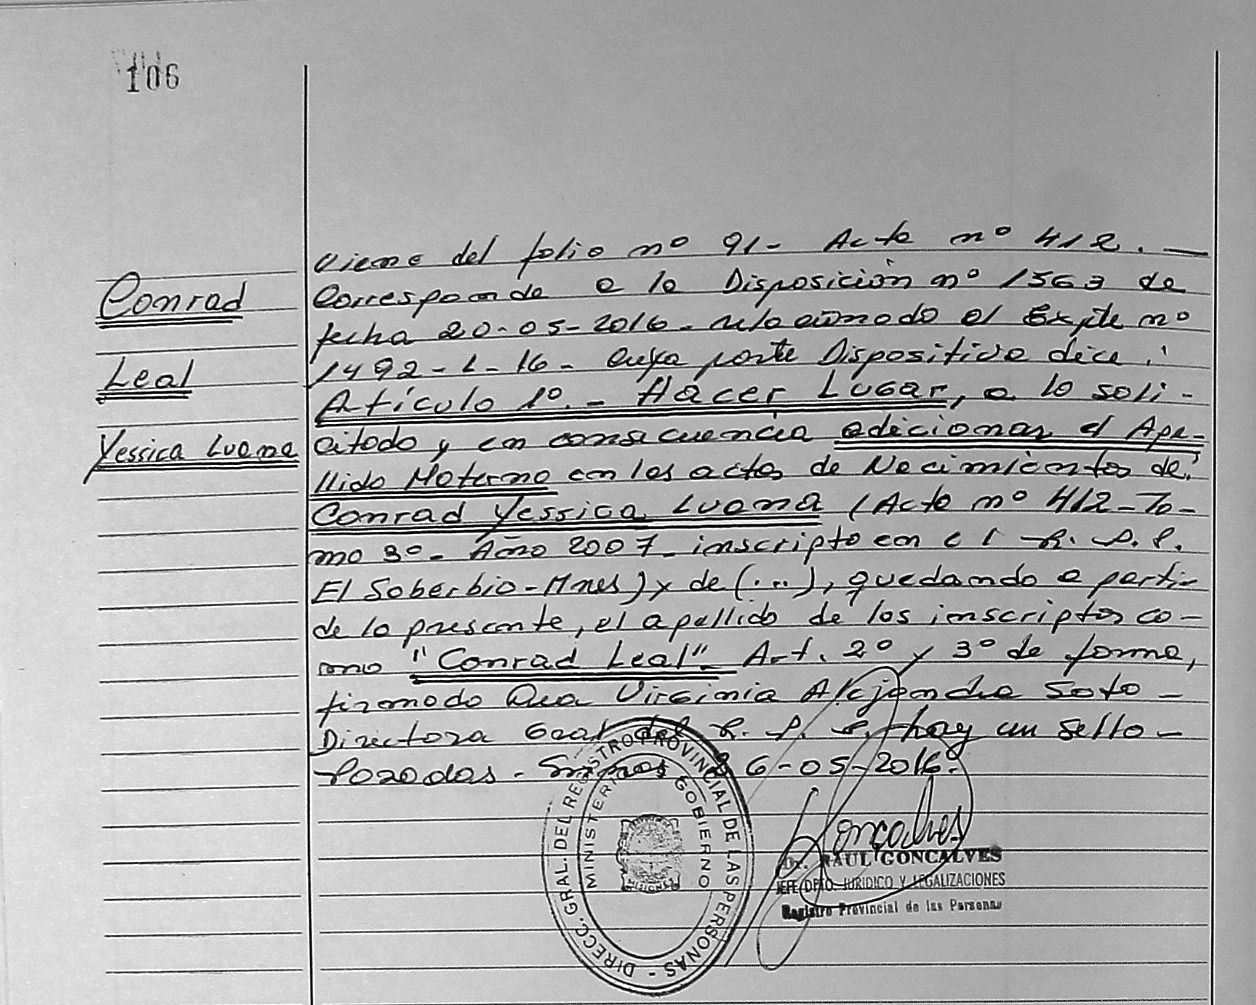 106
Conrad
Leal
Yessica Luana
Viene del folio nº 91- Acta nº 412.-
Corresponde a la Disposición nº 1563 de
fecha 20-05-2016- relacionado el Expte nº
1492-L-16- cuya parte Dispositiva dice:
Artículo 1º.- Hacer Lugar, a lo soli-
citado y en consecuencia adicionar el Ape-
llido Materno en las actas de Nacimientos de:
Conrad Yessica Luana (Acta nº 412-To-
mo 3º- Año 2007- inscripto en el R. P. P.
El Soberbio-Mnes) y de (...), quedando a partir
de la presente, el apellido de los inscriptos co-
mo "Conrad Leal"- Art. 2º y 3º de forma,
firmado Dra Virginia Alejandra Soto-
Directora Gral del R. P. P. hay un sello-
Posadas- 26-05-2016.
DIRECC. GRAL. DEL REGISTRO PROVINCIAL DE LAS PERSONAS -
MINISTERIO GOBIERNO
MISIONES
Goncalves
Dr. RAUL GONCALVES
JEFE DPTO. JURIDICO Y LEGALIZACIONES
Registro Provincial de las Personas